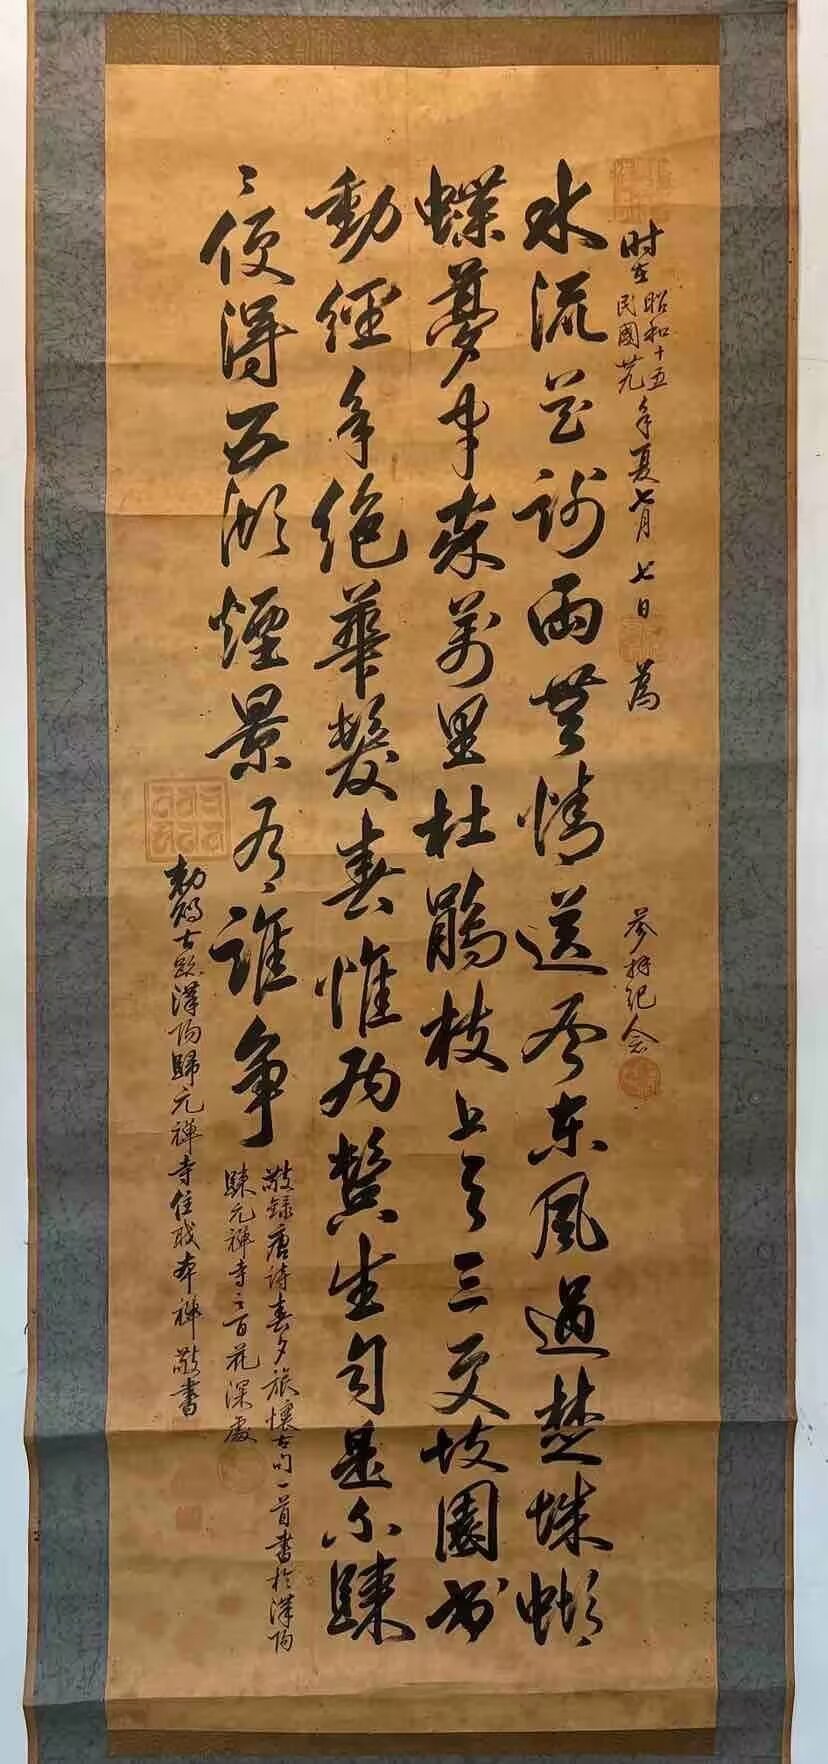 時在昭和十五民國廿九年夏七月七日 為
參拜紀念
水流花謝兩無情送盡東風過楚城蝴
蝶夢中家萬里杜鵑枝上月三更故園書
動經年絕華髮春惟兩鬢生自是不歸
〻便得五湖煙景有誰爭
敬錄唐詩春夕旅懷古句一首書於漢陽
歸元禪寺之百花深處
勅賜古跡漢陽歸元禪寺住職本禪敬書